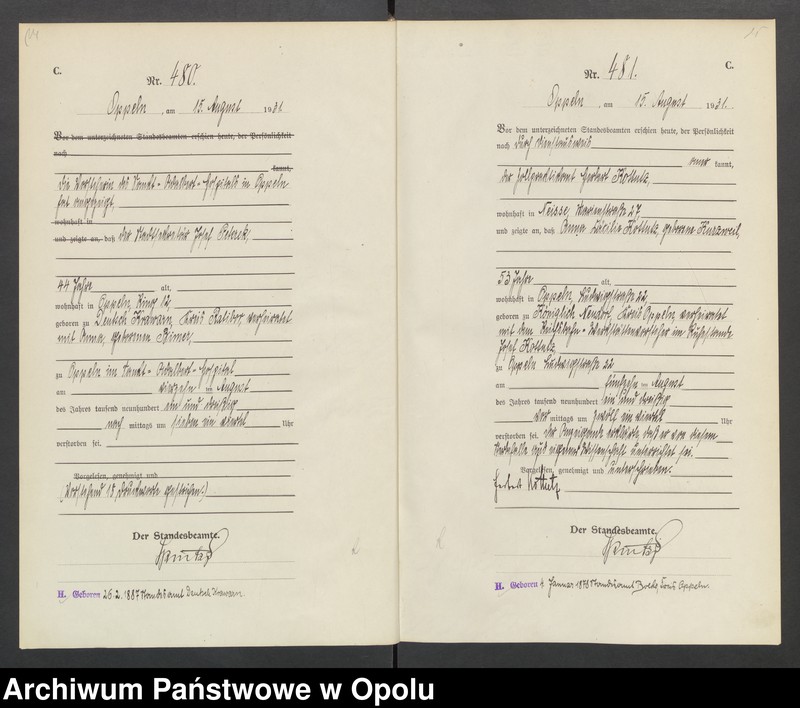 C.
Nr. 480.
Oppeln, am 15. August 1931.
Vor dem unterzeichneten Standesbeamten erschien heute, der Persönlichkeit
nach
kannt,
die Vorsteherin des Sankt-Adalbert-Hospitals in Oppeln
hat angezeigt,
wohnhaft in
und zeigte an, daß der Stadtsekretär Josef
44 Jahre alt,
wohnhaft in Oppeln, Ring 12
geboren zu Deutsch Krawarn, Kreis Ratibor verheiratet
mit Anna, geborenen
zu Oppeln im Sankt-Adalbert-Hospital
am vierzehn ten August
des Jahres tausend neunhundert ein und dreißig
nach mittags um sieben ein viertel Uhr
verstorben sei.
Vorgelesen, genehmigt und
(Vorstehend 15 Druckworte gestrichen.)
Der Standesbeamte.
H. Geboren 26.2.1887 Standesamt Deutsch Krawarn.
C.
Nr. 481.
Oppeln, am 15. August 1931.
Vor dem unterzeichneten Standesbeamten erschien heute, der Persönlichkeit
nach durch Dienstausweis
aner kannt,
der Zollpraktikant Herbert Kottutz,
wohnhaft in Neisse, Marienstraße 27
und zeigte an, daß Anna Cäcilie Kottutz, geborene Kurzweil,
53 Jahre alt,
wohnhaft in Oppeln, Ludwigstraße 22,
geboren zu Königlich Neudorf, Kreis Oppeln, verheiratet
mit dem Reichsbahn-Werkstättenvorsteher im Ruhestande
Josef Kottutz
zu Oppeln Ludwigstraße 22
am fünfzehn ten August
des Jahres tausend neunhundert ein und dreißig
vor mittags um zwölf ein viertel Uhr
verstorben sei. Der Anzeigende erklärte, daß er von diesem
Sterbefalle aus eigener Wissenschaft unterrichtet sei.
Vorgelesen, genehmigt und unterschrieben.
Herbert Kottutz
Der Standesbeamte.
H. Geboren 4. Januar 1878 Standesamt Kreis Oppeln.
Archiwum Państwowe w Opolu